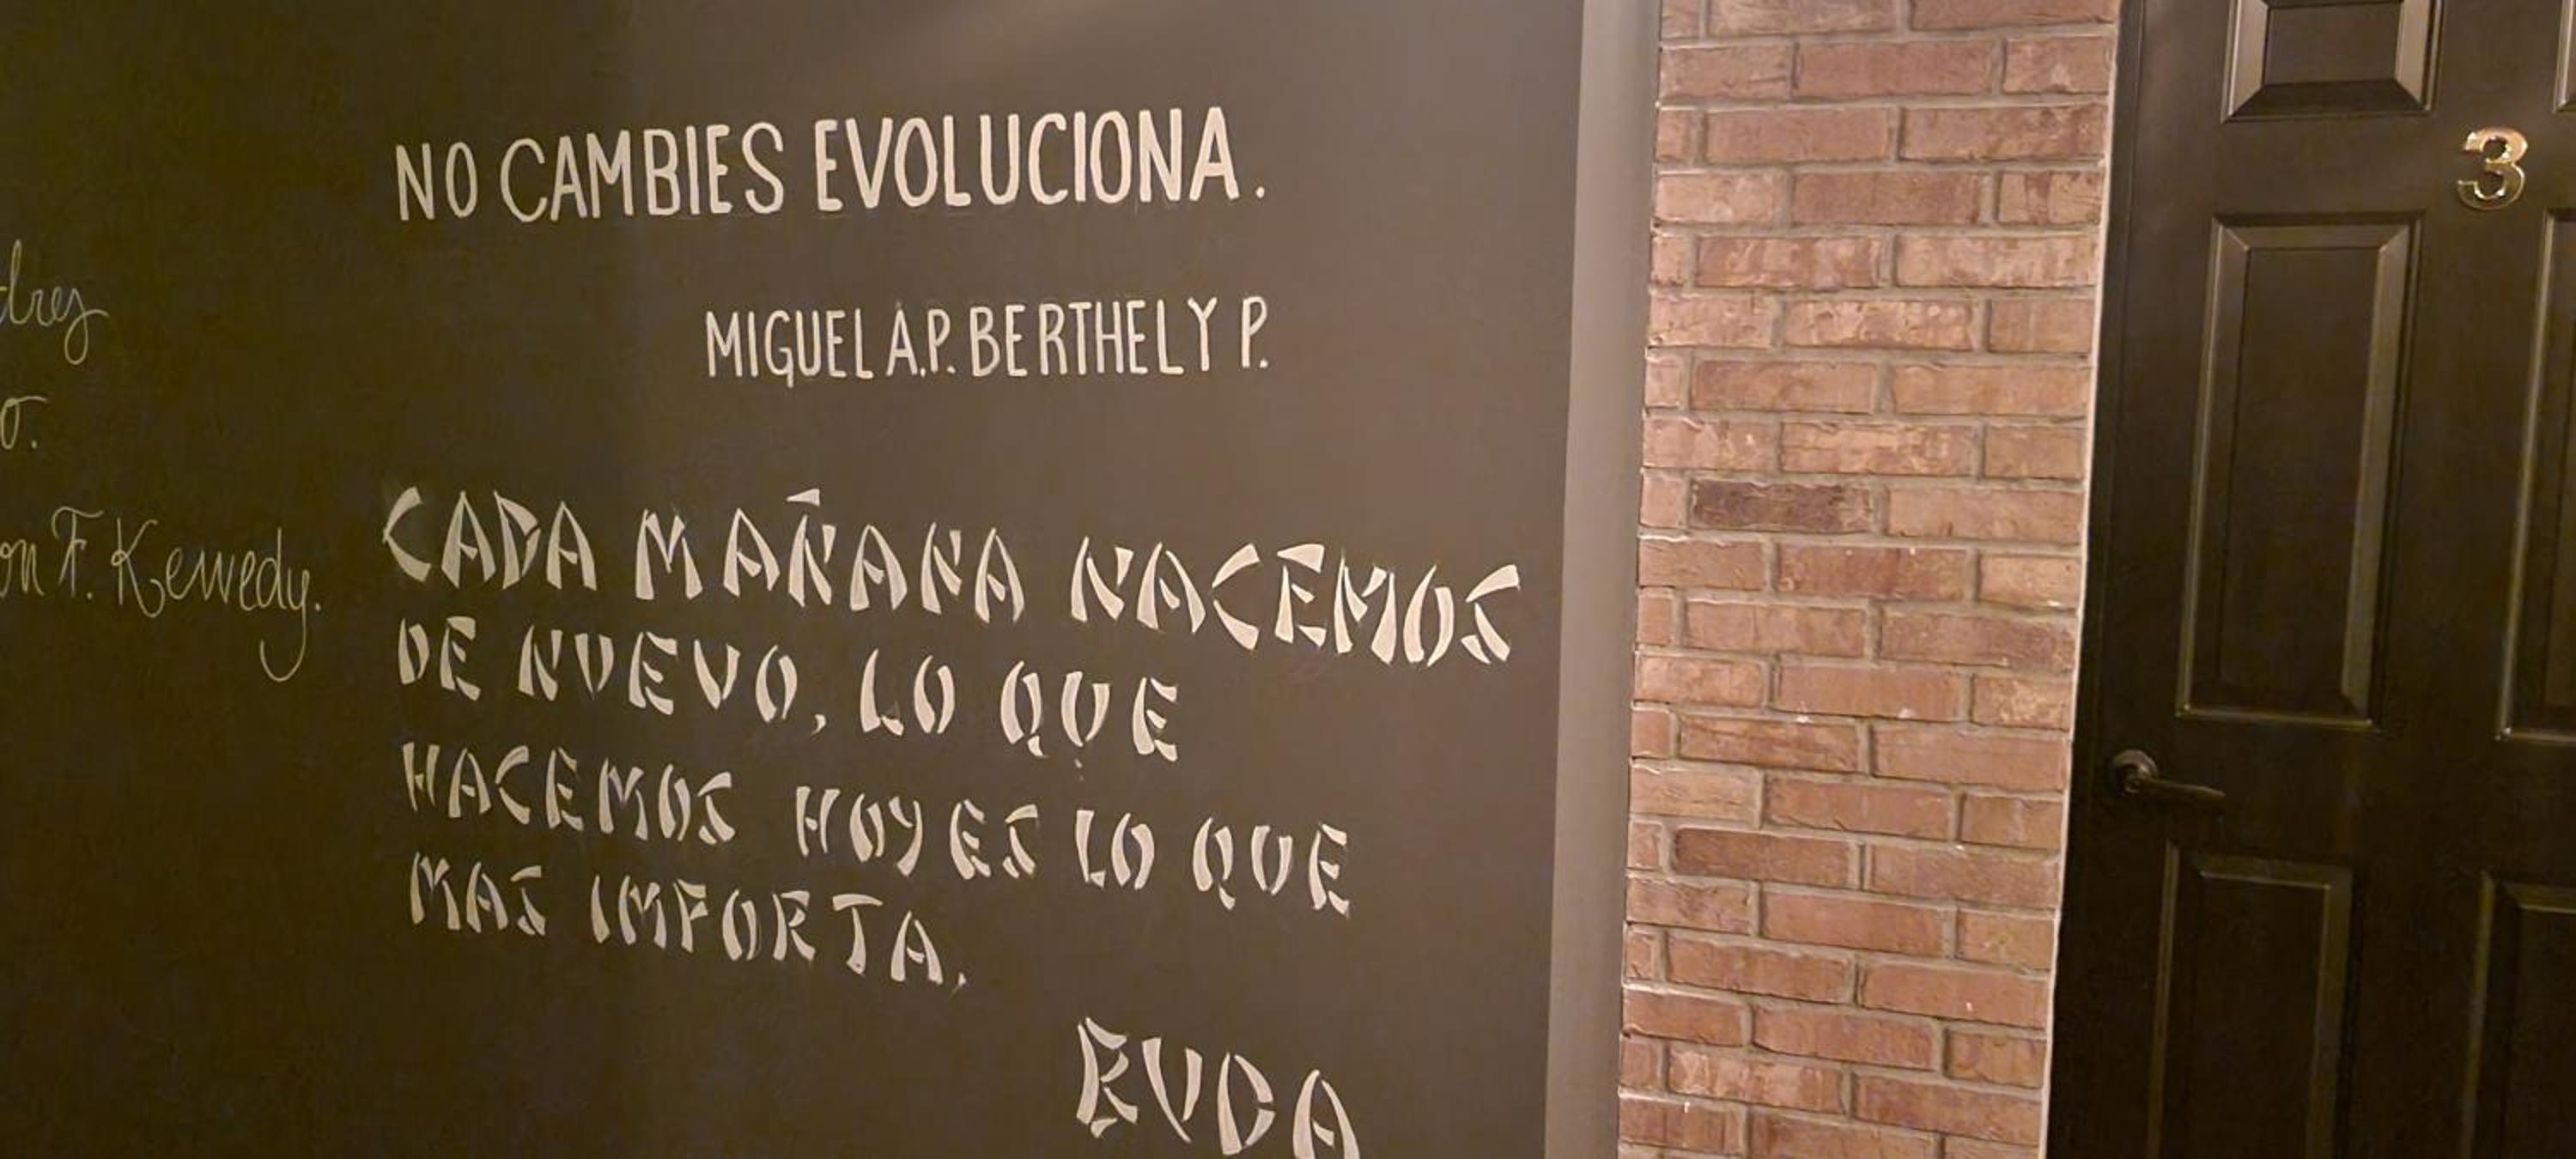 NO CAMBIES EVOLUCIONA.
MIGUEL A.P. BERTHELY P.
CADA MAÑANA NACEMOS
DE NUEVO, LO QUE
HACEMOS HOY ES LO QUE
MAS IMPORTA.
BUDA
o.
F. Kennedy.
3